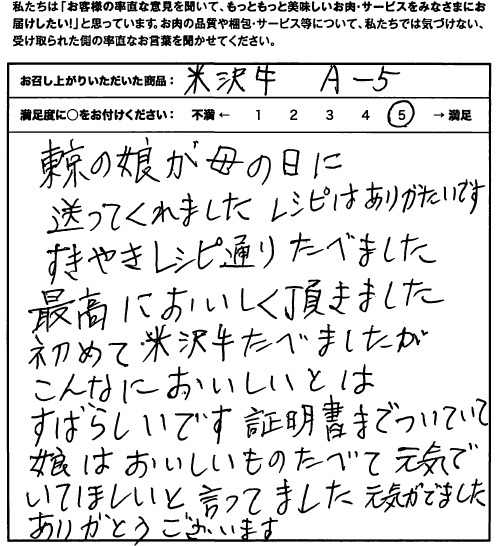 私たちは「お客様の率直な意見を聞いて、もっともっと美味しいお肉・サービスをみなさまにお
届けしたい!」と思っています。お肉の品質や梱包・サービス等について、私たちでは気づけない、
受け取られた側の率直なお言葉を聞かせてください。
お召し上がりいただいた商品: 米沢牛 A-5
満足度に○をお付けください: 不満 ← 1 2 3 4 5 → 満足
東京の娘が母の日に
送ってくれました レシピはありがたいです
すきやきレシピ通りたべました
最高においしく頂きました
初めて米沢牛たべましたが
こんなにおいしいとは
すばらしいです 証明書までついていて
娘はおいしいものたべて元気で
いてほしいと言ってました 元気がでました
ありがとうございます